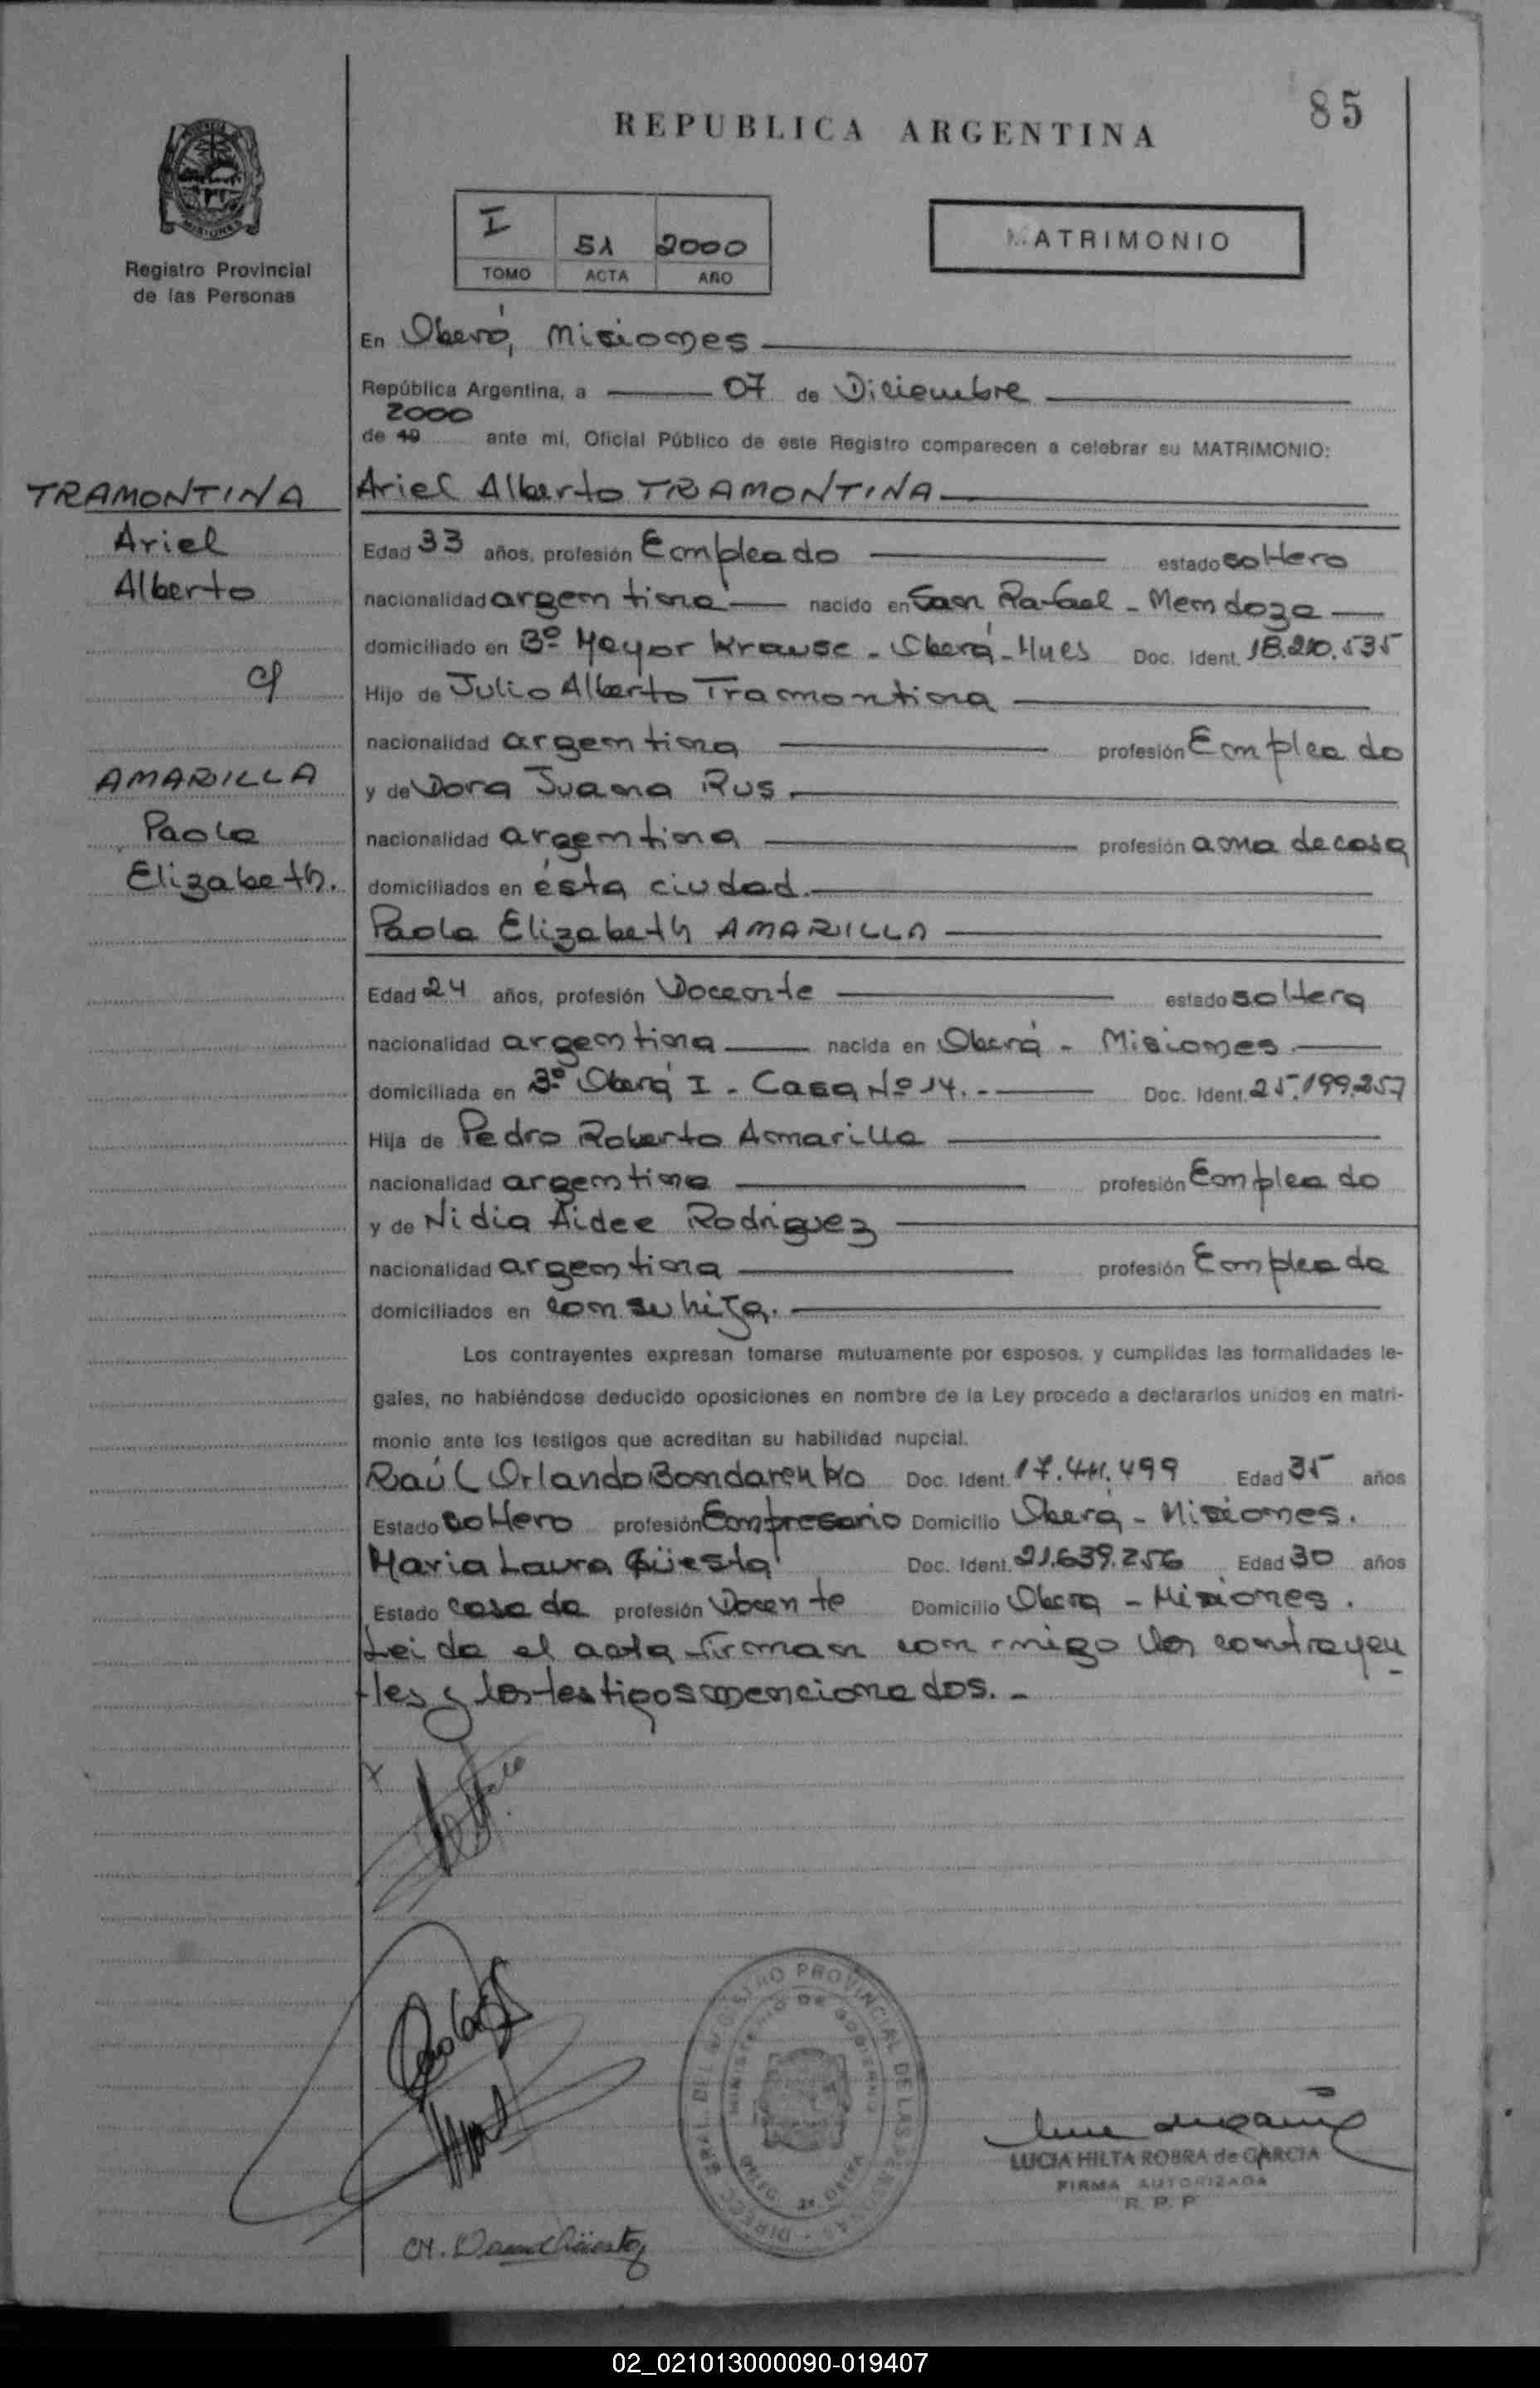 85
REPUBLICA ARGENTINA
MISIONES
Registro Provincial
de las Personas
I 51 2000
TOMO ACTA AÑO
MATRIMONIO
En Oberá, Misiones
República Argentina, a 07 de Diciembre
2000
de 19 ante mi, Oficial Público de este Registro comparecen a celebrar su MATRIMONIO:
TRAMONTINA
Ariel
Alberto
c/
AMARILLA
Paola
Elizabeth.
Ariel Alberto TRAMONTINA
Edad 33 años, profesión Empleado estado soltero
nacionalidad argentina nacido en San Rafael - Mendoza
domiciliado en Bº Heyor Krause - Oberá - Mnes Doc. Ident. 18.210.535
Hijo de Julio Alberto Tramontina
nacionalidad argentina profesión Empleado
y de Dora Juana Rus
nacionalidad argentina profesión ama de casa
domiciliados en ésta ciudad.
Paola Elizabeth AMARILLA
Edad 24 años, profesión Docente estado soltera
nacionalidad argentina nacida en Oberá - Misiones
domiciliada en Bº Oberá I - Casa Nº 14. - Doc. Ident. 25.199.257
Hija de Pedro Roberto Amarilla
nacionalidad argentina profesión Empleado
y de Nidia Aidee Rodriguez
nacionalidad argentina profesión Empleada
domiciliados en con su hija.
Los contrayentes expresan tomarse mutuamente por esposos, y cumplidas las formalidades le-
gales, no habiéndose deducido oposiciones en nombre de la Ley procedo a declararlos unidos en matri-
monio ante los testigos que acreditan su habilidad nupcial.
Raúl Orlando Bondarenko Doc. Ident. 17.411.499 Edad 35 años
Estado soltero profesión Empresario Domicilio Oberá - Misiones.
Maria Laura Güesta Doc. Ident. 21.639.256 Edad 30 años
Estado casada profesión Docente Domicilio Oberá - Misiones.
Leida el acta firman conmigo los contrayen
tes y los testigos mencionados. -
DIRECC. GRAL. DEL REGISTRO PROVINCIAL DE LAS PERSONAS
MINISTERIO DE GOBIERNO
DELEG. 2ª OBERA
LUCIA HILTA ROBRA de GARCIA
FIRMA AUTORIZADA
R. P. P
02_021013000090-019407